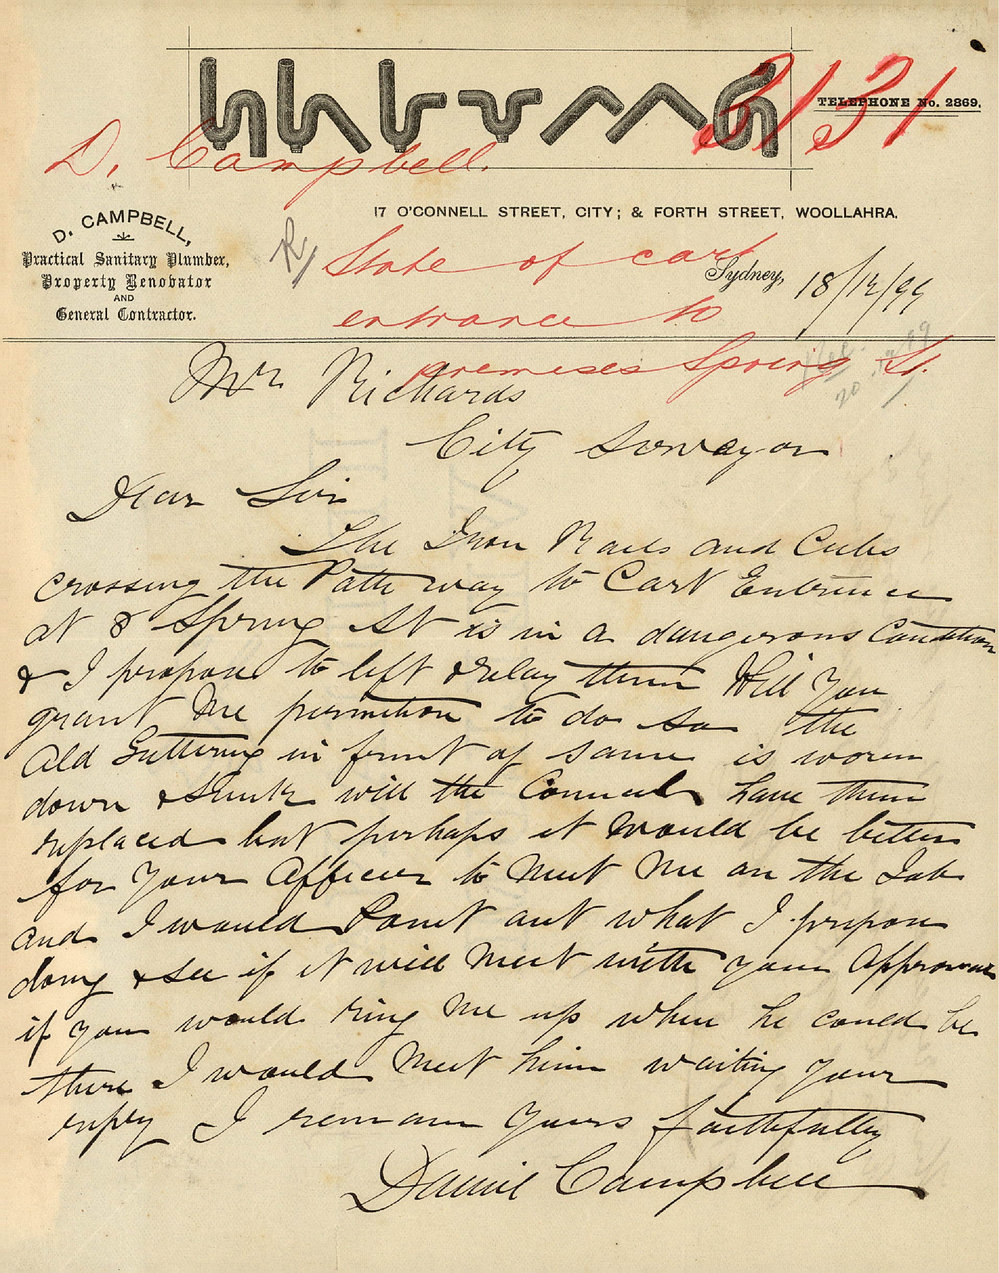 3131
TELEPHONE No. 2869.
D. Campbell.
17 O'CONNELL STREET, CITY; & FORTH STREET, WOOLLAHRA.
D. CAMPBELL,
Practical Sanitary Plumber,
Property Renobator
AND
General Contractor.
R
State of cart
entrance to
premises Spring St.
Sydney, 18/12/99
20
99
Mr Richards
City Surveyor
Dear Sir
The Iron Rails and Cubs
crossing the Path way to Cart Entrance
at 8 Spring St is in a dangerous Condition
& I propose to lift & relay them Will You
grant Me permition to do so the
Old Guttering in front of same is worn
down & sunk will the Council have them
replaced but perhaps it would be better
for Your Officer to Meet Me on the Job
and I would Point out what I propose
doing & see if it will Meet with your Approval
if you would ring Me up when he could be
there I would Meet him waiting your
reply I remain Yours faithfully
Daniel Campbell